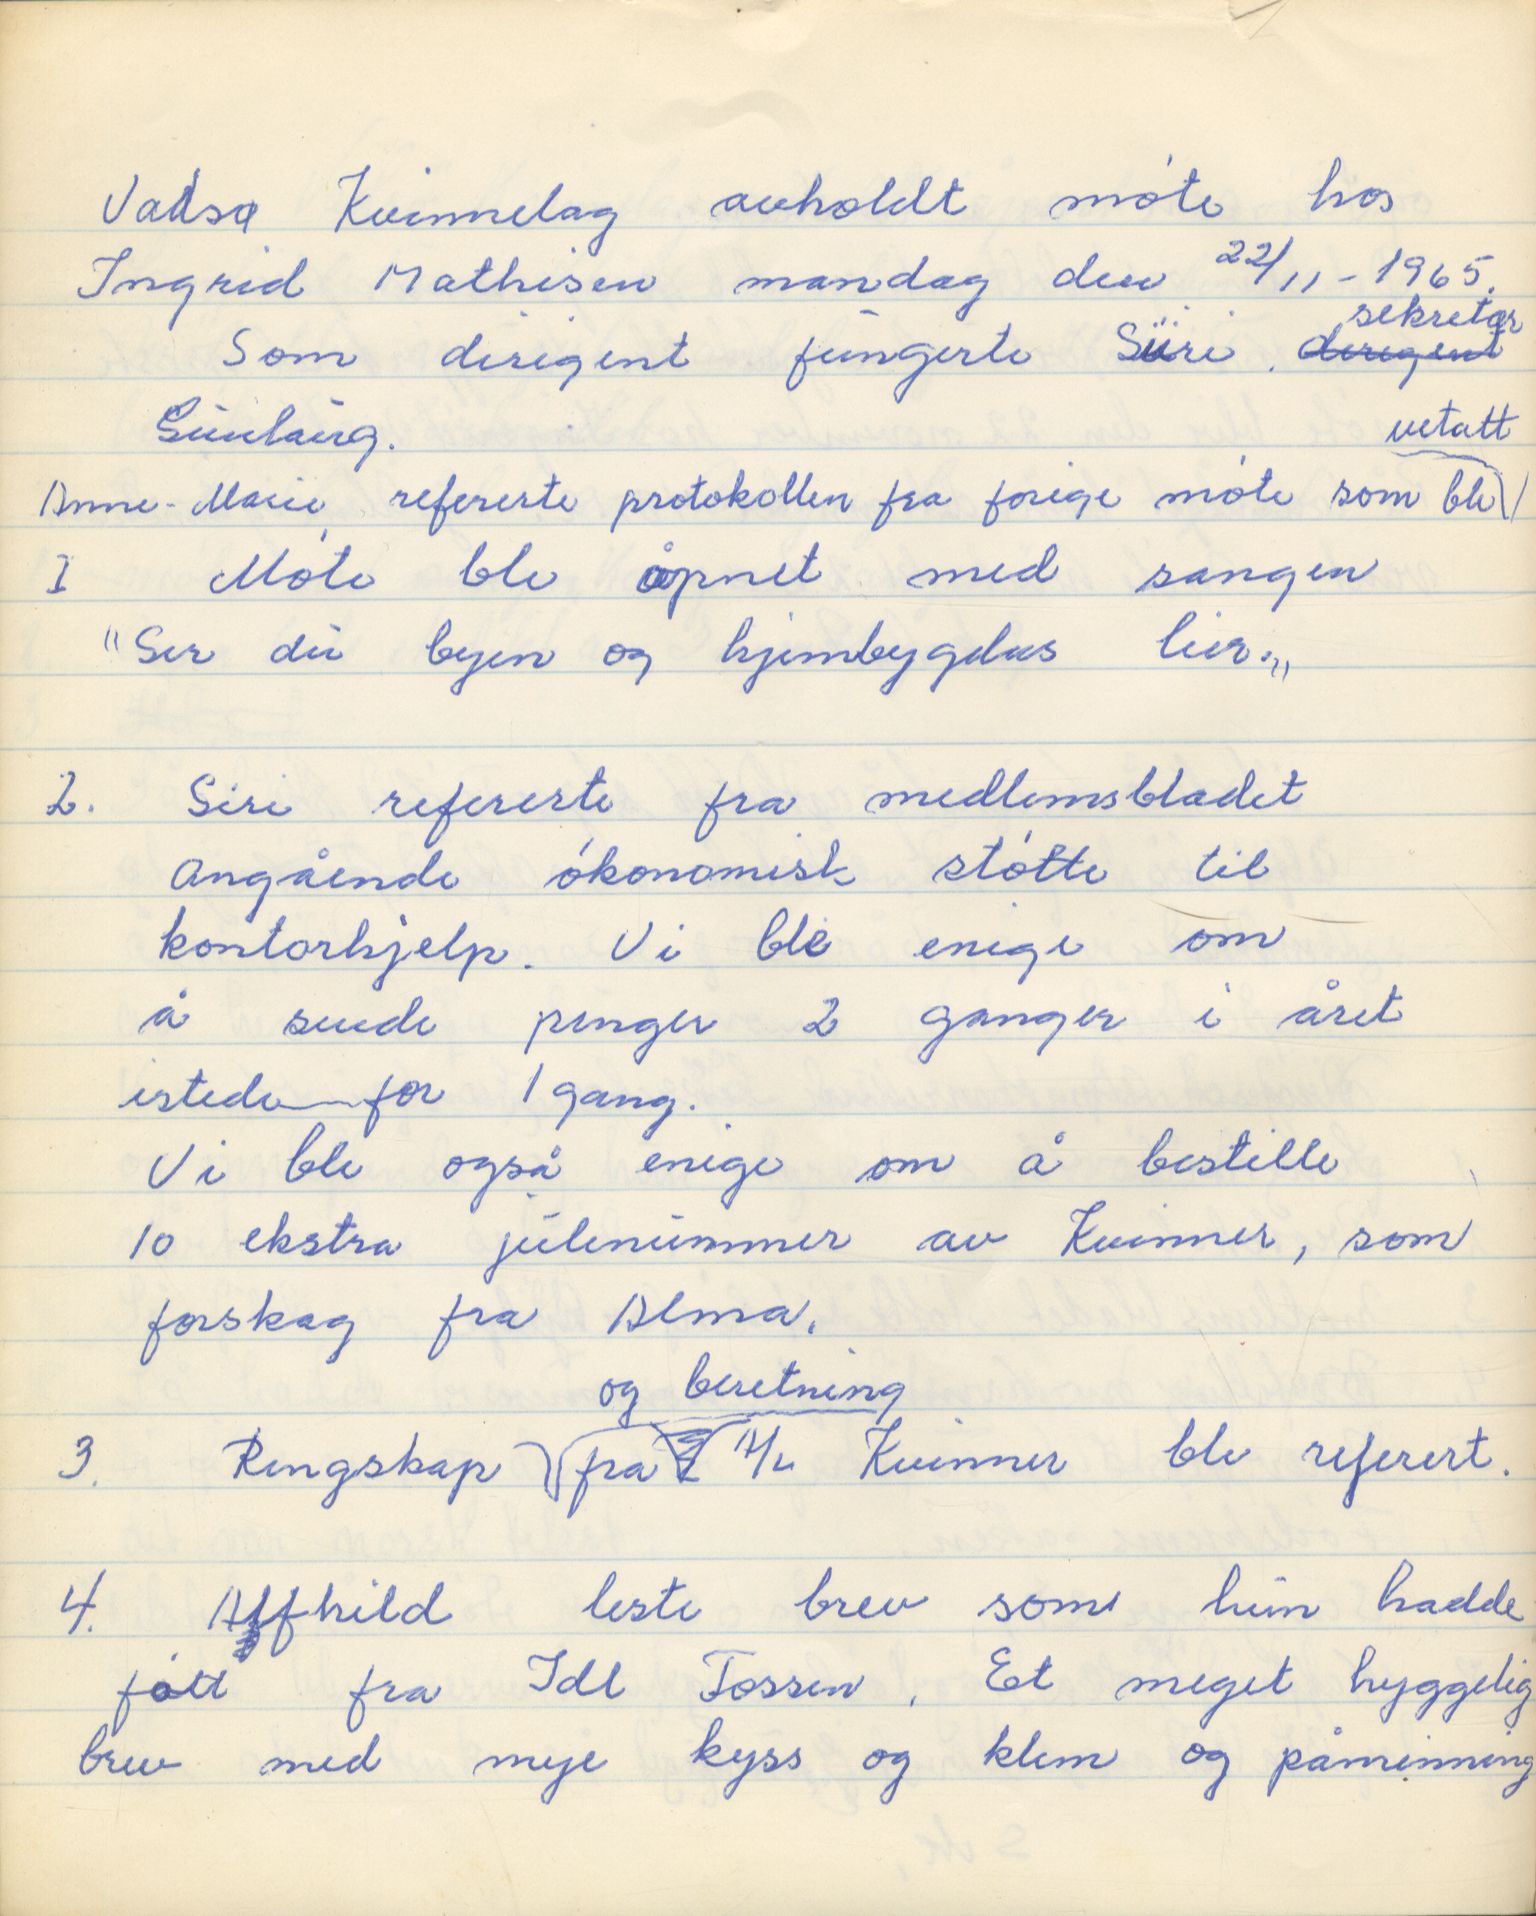 Vadsø Kvinnelag avholdt møte hos
Ingrid Mathisen mandag den 22/11-1965.
Som dirigent fungerte Siri. sekretær
Gunlaug.
Anne-Marie refererte protokollen fra forige møte som ble vetatt
I Møte ble åpnet med sangen
"Ser du byen og hjembygdens lier."
2. Siri refererte fra medlemsbladet
angående økonomisk støtte til
kontorhjelp. Vi ble enige om
å sende penger 2 ganger i året
istede for 1 gang.
Vi ble også enige om å bestille
10 ekstra julenummer av Kvinner, som
forskag fra Alma.
3. Rengskap og beretning fra A/L Kvinner ble referert.
4. Alfhild leste brev som hun hadde
fått fra Idl Fossen. Et meget hyggelig
brev med mye kyss og klem og påminning